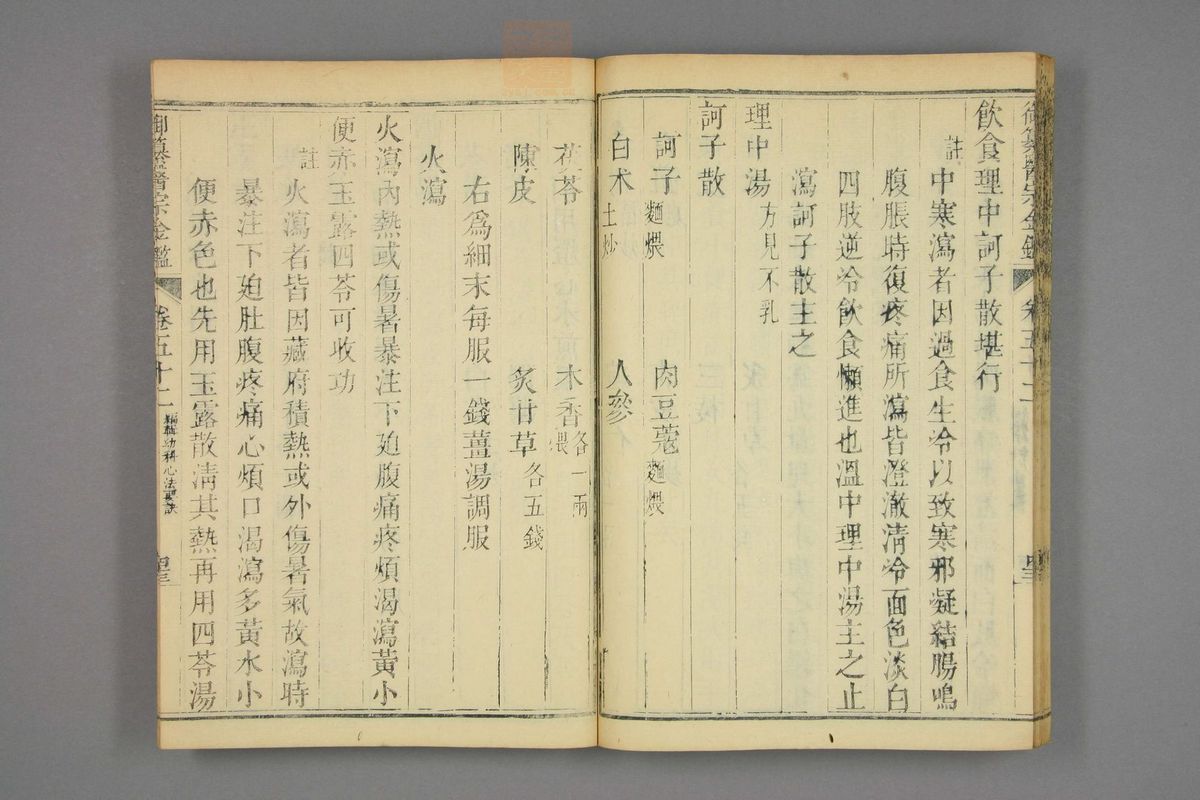 御纂醫宗金鑑 卷五十二
飲食理中訶子散堪行
註 中寒瀉者因過食生冷以致寒邪凝結腸鳴
腹脹時復疼痛所瀉皆澄澈清冷面色淡白
四肢逆冷飲食懶進也溫中理中湯主之止
瀉訶子散主之
理中湯 方見不乳
訶子散
訶子 麵煨 肉豆蔻 麵煨
白术 土炒 人參
茯苓 木香 煨各一兩
陳皮 炙甘草 各五錢
右爲細末每服一錢薑湯調服
火瀉
火瀉內熱或傷暑暴注下廹腹痛疼煩渴瀉黃小
便赤玉露四苓可收功
註 火瀉者皆因藏府積熱或外傷暑氣故瀉時
暴注下廹肚腹疼痛心煩口渴瀉多黃水小
便赤色也先用玉露散清其熱再用四苓湯
御纂醫宗金鑑 卷五十二 編輯幼科心法要訣